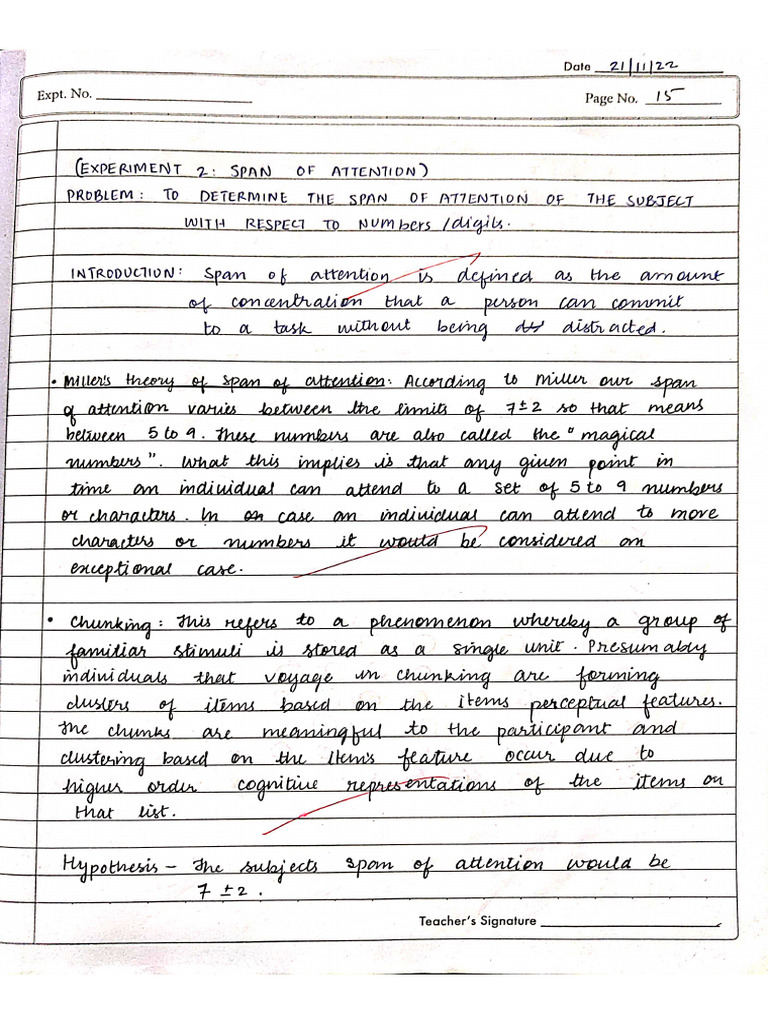 Date 21/11/22
Expt. No.
Page No. 15
(EXPERIMENT 2: SPAN OF ATTENTION)
PROBLEM: TO DETERMINE THE SPAN OF ATTENTION OF THE SUBJECT
WITH RESPECT TO NUMbers /digits.
INTRODUCTION: Span of attention is defined as the amount
of concentration that a person can commit
to a task without being distracted.
• Miller's theory of span of attention: According to Miller our span
of attention varies between the limits of 7±2 so that means
between 5 to 9. These numbers are also called the "magical
numbers". What this implies is that any given point in
time an individual can attend to a set of 5 to 9 numbers
or characters. In case an individual can attend to more
characters or numbers it would be considered an
exceptional case.
• Chunking: This refers to a phenomenon whereby a group of
familiar stimuli is stored as a single unit. Presumably
individuals that voyage in chunking are forming
clusters of items based on the items perceptual features.
The chunks are meaningful to the participant and
clustering based on the item's feature occur due to
higher order cognitive representations of the items on
that list.
Hypothesis - The subjects span of attention would be
7 ±2.
Teacher's Signature